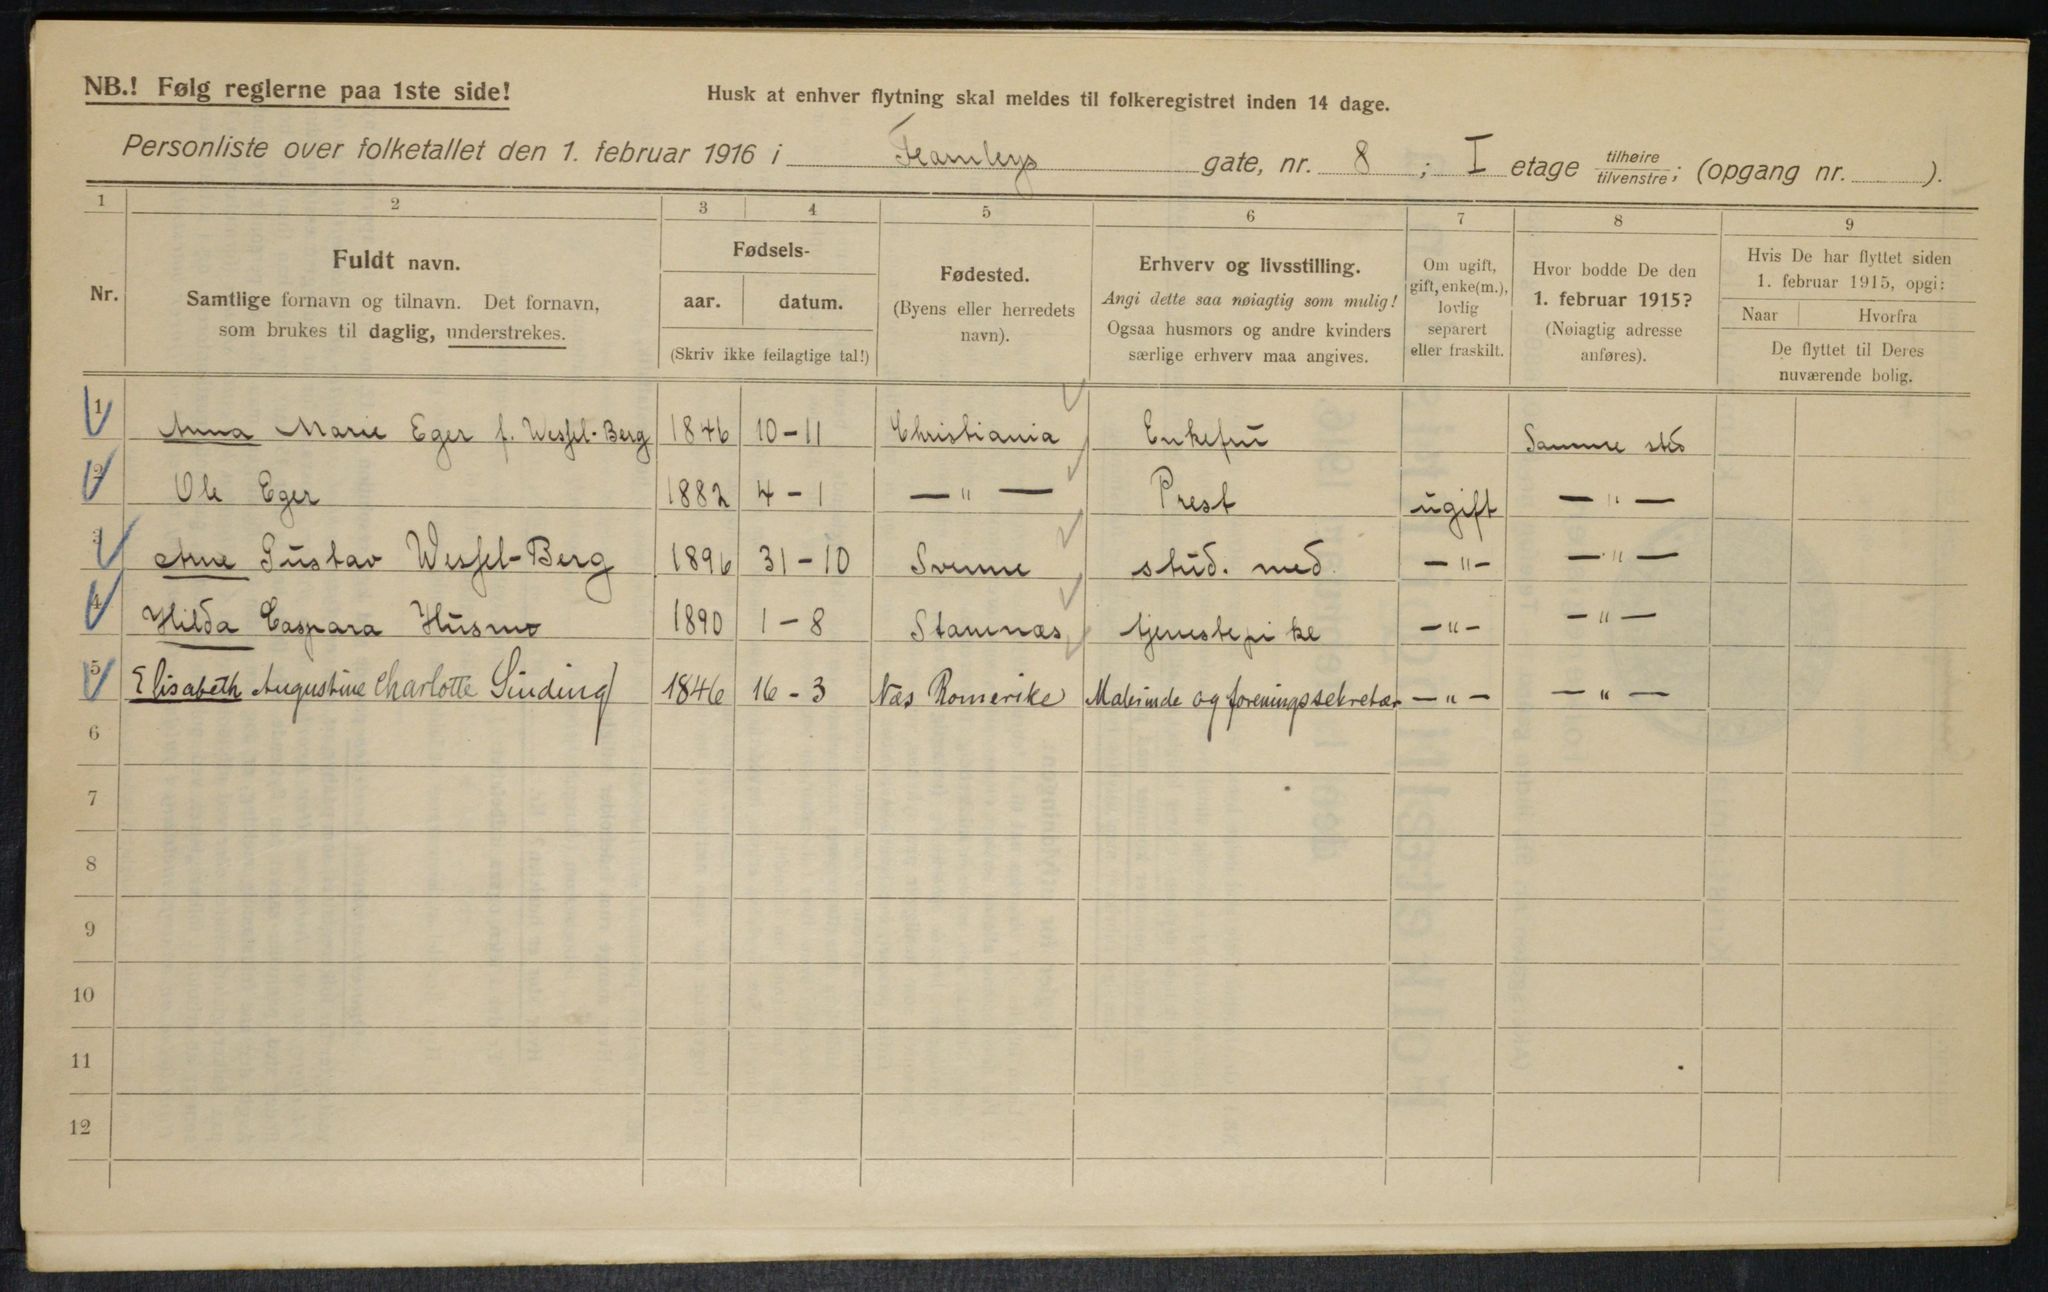 NB.! Følg reglerne paa 1ste side!
Husk at enhver flytning skal meldes til folkeregistret inden 14 dage.
Personliste over folketallet den 1. februar 1916 i Fearnleys gate, nr. 8; I etage tilhøire/tilvenstre; (opgang nr. ).
1 2 3 4 5 6 7 8 9
Nr.
Fuldt navn.
Samtlige fornavn og tilnavn. Det fornavn,
som brukes til daglig, understrekes.
Fødsels-
aar. datum.
(Skriv ikke feilagtige tal!)
Fødested.
(Byens eller herredets
navn).
Erhverv og livsstilling.
Angi dette saa nøiagtig som mulig!
Ogsaa husmors og andre kvinders
særlige erhverv maa angives.
Om ugift,
gift, enke(m.),
lovlig
separert
eller fraskilt.
Hvor bodde De den
1. februar 1915?
(Nøiagtig adresse
anføres).
Hvis De har flyttet siden
1. februar 1915, opgi:
Naar Hvorfra
De flyttet til Deres
nuværende bolig.
1 Anna Marie Eger f. Wessel-Berg 1846 10-11 Christiania Enkefru Samme sted
2 Ole Eger 1882 4-1 — " — Prest ugift — " —
3 Arne Gustav Wessel-Berg 1896 31-10 Svenne stud. med. — " — — " —
4 Hilda Caspara Husmo 1890 1-8 Stamnæs tjenestepike — " — — " —
5 Elisabeth Augustine Charlotte Sinding 1846 16-3 Næs Romerike Malerinde og foreningssekretær — " — — " —
6
7
8
9
10
11
12